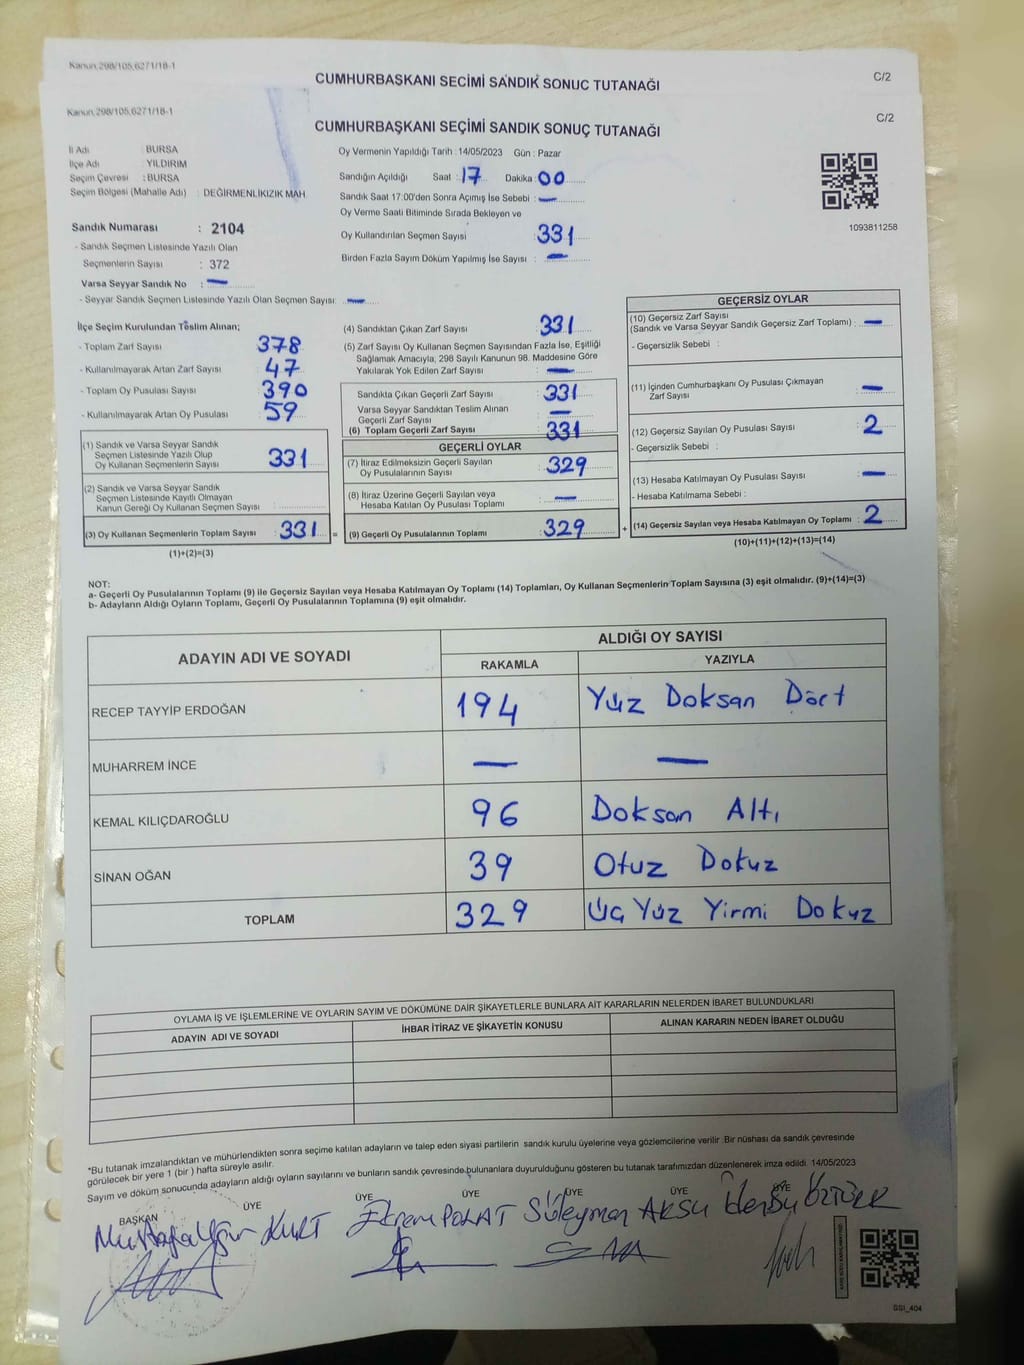 Kanun,298/105,6271/18-1
CUMHURBAŞKANI SECİMİ SANDIK SONUC TUTANAĞI
C/2
Kanun,298/105,6271/18-1
CUMHURBAŞKANI SEÇİMİ SANDIK SONUÇ TUTANAĞI
C/2
İl Adı : BURSA
İlçe Adı : YILDIRIM
Seçim Çevresi : BURSA
Seçim Bölgesi (Mahalle Adı) : DEĞİRMENLİKIZIK MAH
Sandık Numarası : 2104
- Sandık Seçmen Listesinde Yazılı Olan
Seçmenlerin Sayısı : 372
Varsa Seyyar Sandık No : —
- Seyyar Sandık Seçmen Listesinde Yazılı Olan Seçmen Sayısı: —
Oy Vermenin Yapıldığı Tarih : 14/05/2023 Gün : Pazar
Sandığın Açıldığı Saat : 17 Dakika : 00
Sandık Saat 17:00'den Sonra Açımış İse Sebebi : —
Oy Verme Saati Bitiminde Sırada Bekleyen ve
Oy Kullandırılan Seçmen Sayısı : 331
Birden Fazla Sayım Döküm Yapılmış İse Sayısı : —
1093811258
İlçe Seçim Kurulundan Teslim Alınan;
- Toplam Zarf Sayısı : 378
- Kullanılmayarak Artan Zarf Sayısı : 47
- Toplam Oy Pusulası Sayısı : 390
- Kullanılmayarak Artan Oy Pusulası : 59
(1) Sandık ve Varsa Seyyar Sandık
Seçmen Listesinde Yazılı Olup
Oy Kullanan Seçmenlerin Sayısı : 331
(2) Sandık ve Varsa Seyyar Sandık
Seçmen Listesinde Kayıtlı Olmayan
Kanun Gereği Oy Kullanan Seçmen Sayısı :
(3) Oy Kullanan Seçmenlerin Toplam Sayısı : 331 =
(1)+(2)=(3)
(4) Sandıktan Çıkan Zarf Sayısı : 331
(5) Zarf Sayısı Oy Kullanan Seçmen Sayısından Fazla İse, Eşitliği
Sağlamak Amacıyla, 298 Sayılı Kanunun 98. Maddesine Göre
Yakılarak Yok Edilen Zarf Sayısı : —
Sandıkta Çıkan Geçerli Zarf Sayısı : 331
Varsa Seyyar Sandıktan Teslim Alınan
Geçerli Zarf Sayısı : —
(6) Toplam Geçerli Zarf Sayısı : 331
GEÇERLİ OYLAR
(7) İtiraz Edilmeksizin Geçerli Sayılan
Oy Pusulalarının Sayısı : 329
(8) İtiraz Üzerine Geçerli Sayılan veya
Hesaba Katılan Oy Pusulası Toplamı : —
(9) Geçerli Oy Pusulalarının Toplamı : 329 +
GEÇERSİZ OYLAR
(10) Geçersiz Zarf Sayısı
(Sandık ve Varsa Seyyar Sandık Geçersiz Zarf Toplamı) : —
- Geçersizlik Sebebi :
(11) İçinden Cumhurbaşkanı Oy Pusulası Çıkmayan
Zarf Sayısı : —
(12) Geçersiz Sayılan Oy Pusulası Sayısı : 2
- Geçersizlik Sebebi :
(13) Hesaba Katılmayan Oy Pusulası Sayısı : —
- Hesaba Katılmama Sebebi :
(14) Geçersiz Sayılan veya Hesaba Katılmayan Oy Toplamı : 2
(10)+(11)+(12)+(13)=(14)
NOT:
a- Geçerli Oy Pusulalarının Toplamı (9) ile Geçersiz Sayılan veya Hesaba Katılmayan Oy Toplamı (14) Toplamları, Oy Kullanan Seçmenlerin Toplam Sayısına (3) eşit olmalıdır. (9)+(14)=(3)
b- Adayların Aldığı Oyların Toplamı, Geçerli Oy Pusulalarının Toplamına (9) eşit olmalıdır.
ADAYIN ADI VE SOYADI
ALDIĞI OY SAYISI
RAKAMLA YAZIYLA
RECEP TAYYİP ERDOĞAN 194 Yüz Doksan Dört
MUHARREM İNCE — —
KEMAL KILIÇDAROĞLU 96 Doksan Altı
SİNAN OĞAN 39 Otuz Dokuz
TOPLAM 329 Üç Yüz Yirmi Dokuz
OYLAMA İŞ VE İŞLEMLERİNE VE OYLARIN SAYIM VE DÖKÜMÜNE DAİR ŞİKAYETLERLE BUNLARA AİT KARARLARIN NELERDEN İBARET BULUNDUKLARI
ADAYIN ADI VE SOYADI İHBAR İTİRAZ VE ŞİKAYETİN KONUSU ALINAN KARARIN NEDEN İBARET OLDUĞU
*Bu tutanak imzalandıktan ve mühürlendikten sonra seçime katılan adayların ve talep eden siyasi partilerin sandık kurulu üyelerine veya gözlemcilerine verilir .Bir nüshası da sandık çevresinde
görülecek bir yere 1 (bir ) hafta süreyle asılır.
Sayım ve döküm sonucunda adayların aldığı oyların sayılarını ve bunların sandık çevresinde bulunanlara duyurulduğunu gösteren bu tutanak tarafımızdan düzenlenerek imza edildi. 14/05/2023
BAŞKAN ÜYE ÜYE ÜYE ÜYE ÜYE ÜYE
Mustafa Uğur KURT Ekrem POLAT Süleyman AKSU ÖZTÜRK
SSI_404